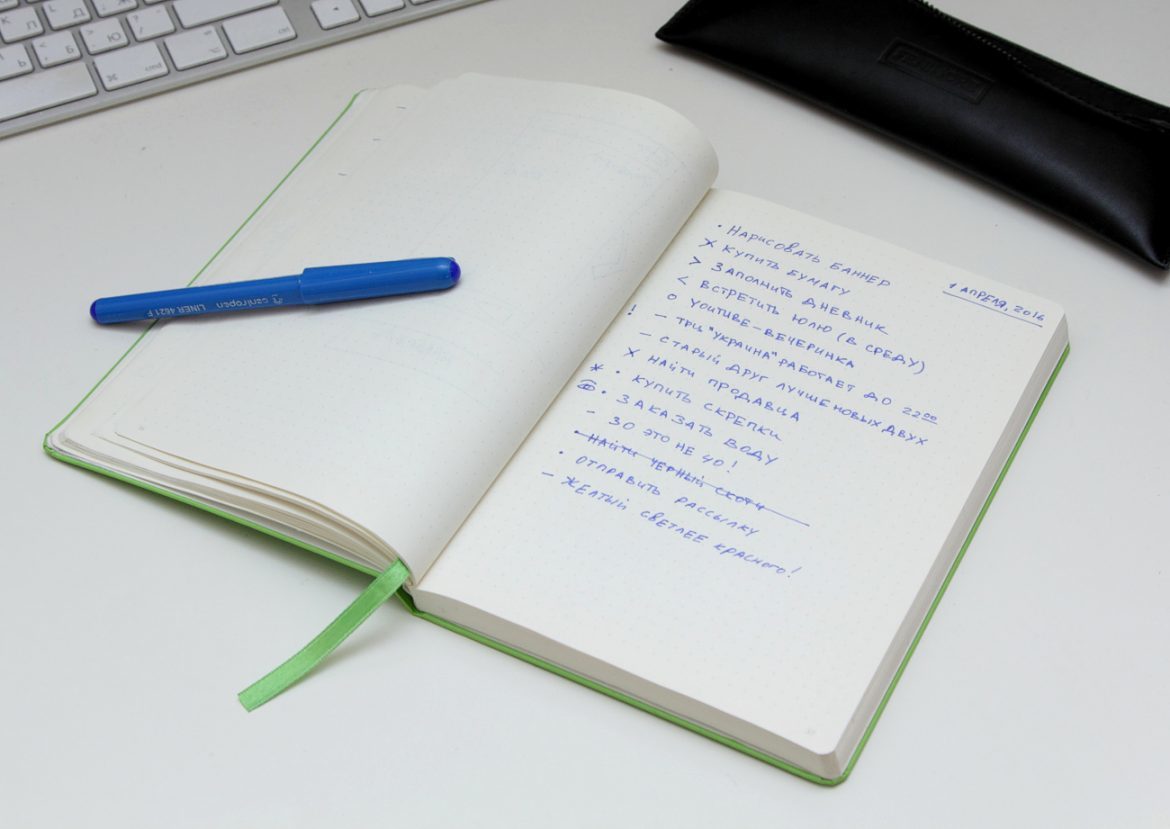 1 АПРЕЛЯ, 2016
• НАРИСОВАТЬ БАННЕР
× КУПИТЬ БУМАГУ
> ЗАПОЛНИТЬ ДНЕВНИК
< ВСТРЕТИТЬ ЮЛЮ (В СРЕДУ)
○ YOUTUBE-ВЕЧЕРИНКА
! – ТРЦ "УКРАИНА" РАБОТАЕТ ДО 22 00
– СТАРЫЙ ДРУГ ЛУЧШЕ НОВЫХ ДВУХ
× НАЙТИ ПРОДАВЦА
* • КУПИТЬ СКРЕПКИ
• ЗАКАЗАТЬ ВОДУ
– 30 ЭТО НЕ 40!
• НАЙТИ ЧЕРНЫЙ СКОТЧ
• ОТПРАВИТЬ РАССЫЛКУ
– ЖЕЛТЫЙ СВЕТЛЕЕ КРАСНОГО!
centropen
LINER 4621 F